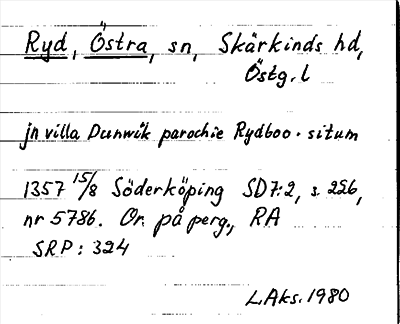 Ryd, Östra, sn, Skärkinds hd,
Östg. l
jn villa Dunwik parochie Rydboo. situm
1357 15/8 Söderköping SD7:2, s. 226,
nr 5786. Or. på perg., RA
SRP: 324
L.Aks. 1980